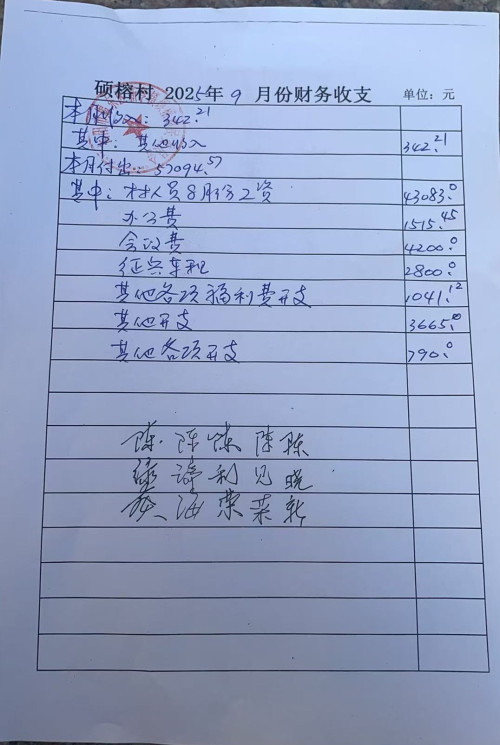 硕榕村 2025年9月份财务收支 单位：元
本月收入：342.21
其中：其他收入 342.21
本月付出：57094.57
其中：村人员8月份工资 43083.0
办公费 1515.45
会议费 4200.0
征兵车租 2800.0
其他各项福利费开支 1041.12
其他开支 3665.00
其他各项开支 790.0
陈 陈 陈 陈 陈
海 利 见 晓
荣 荣 新